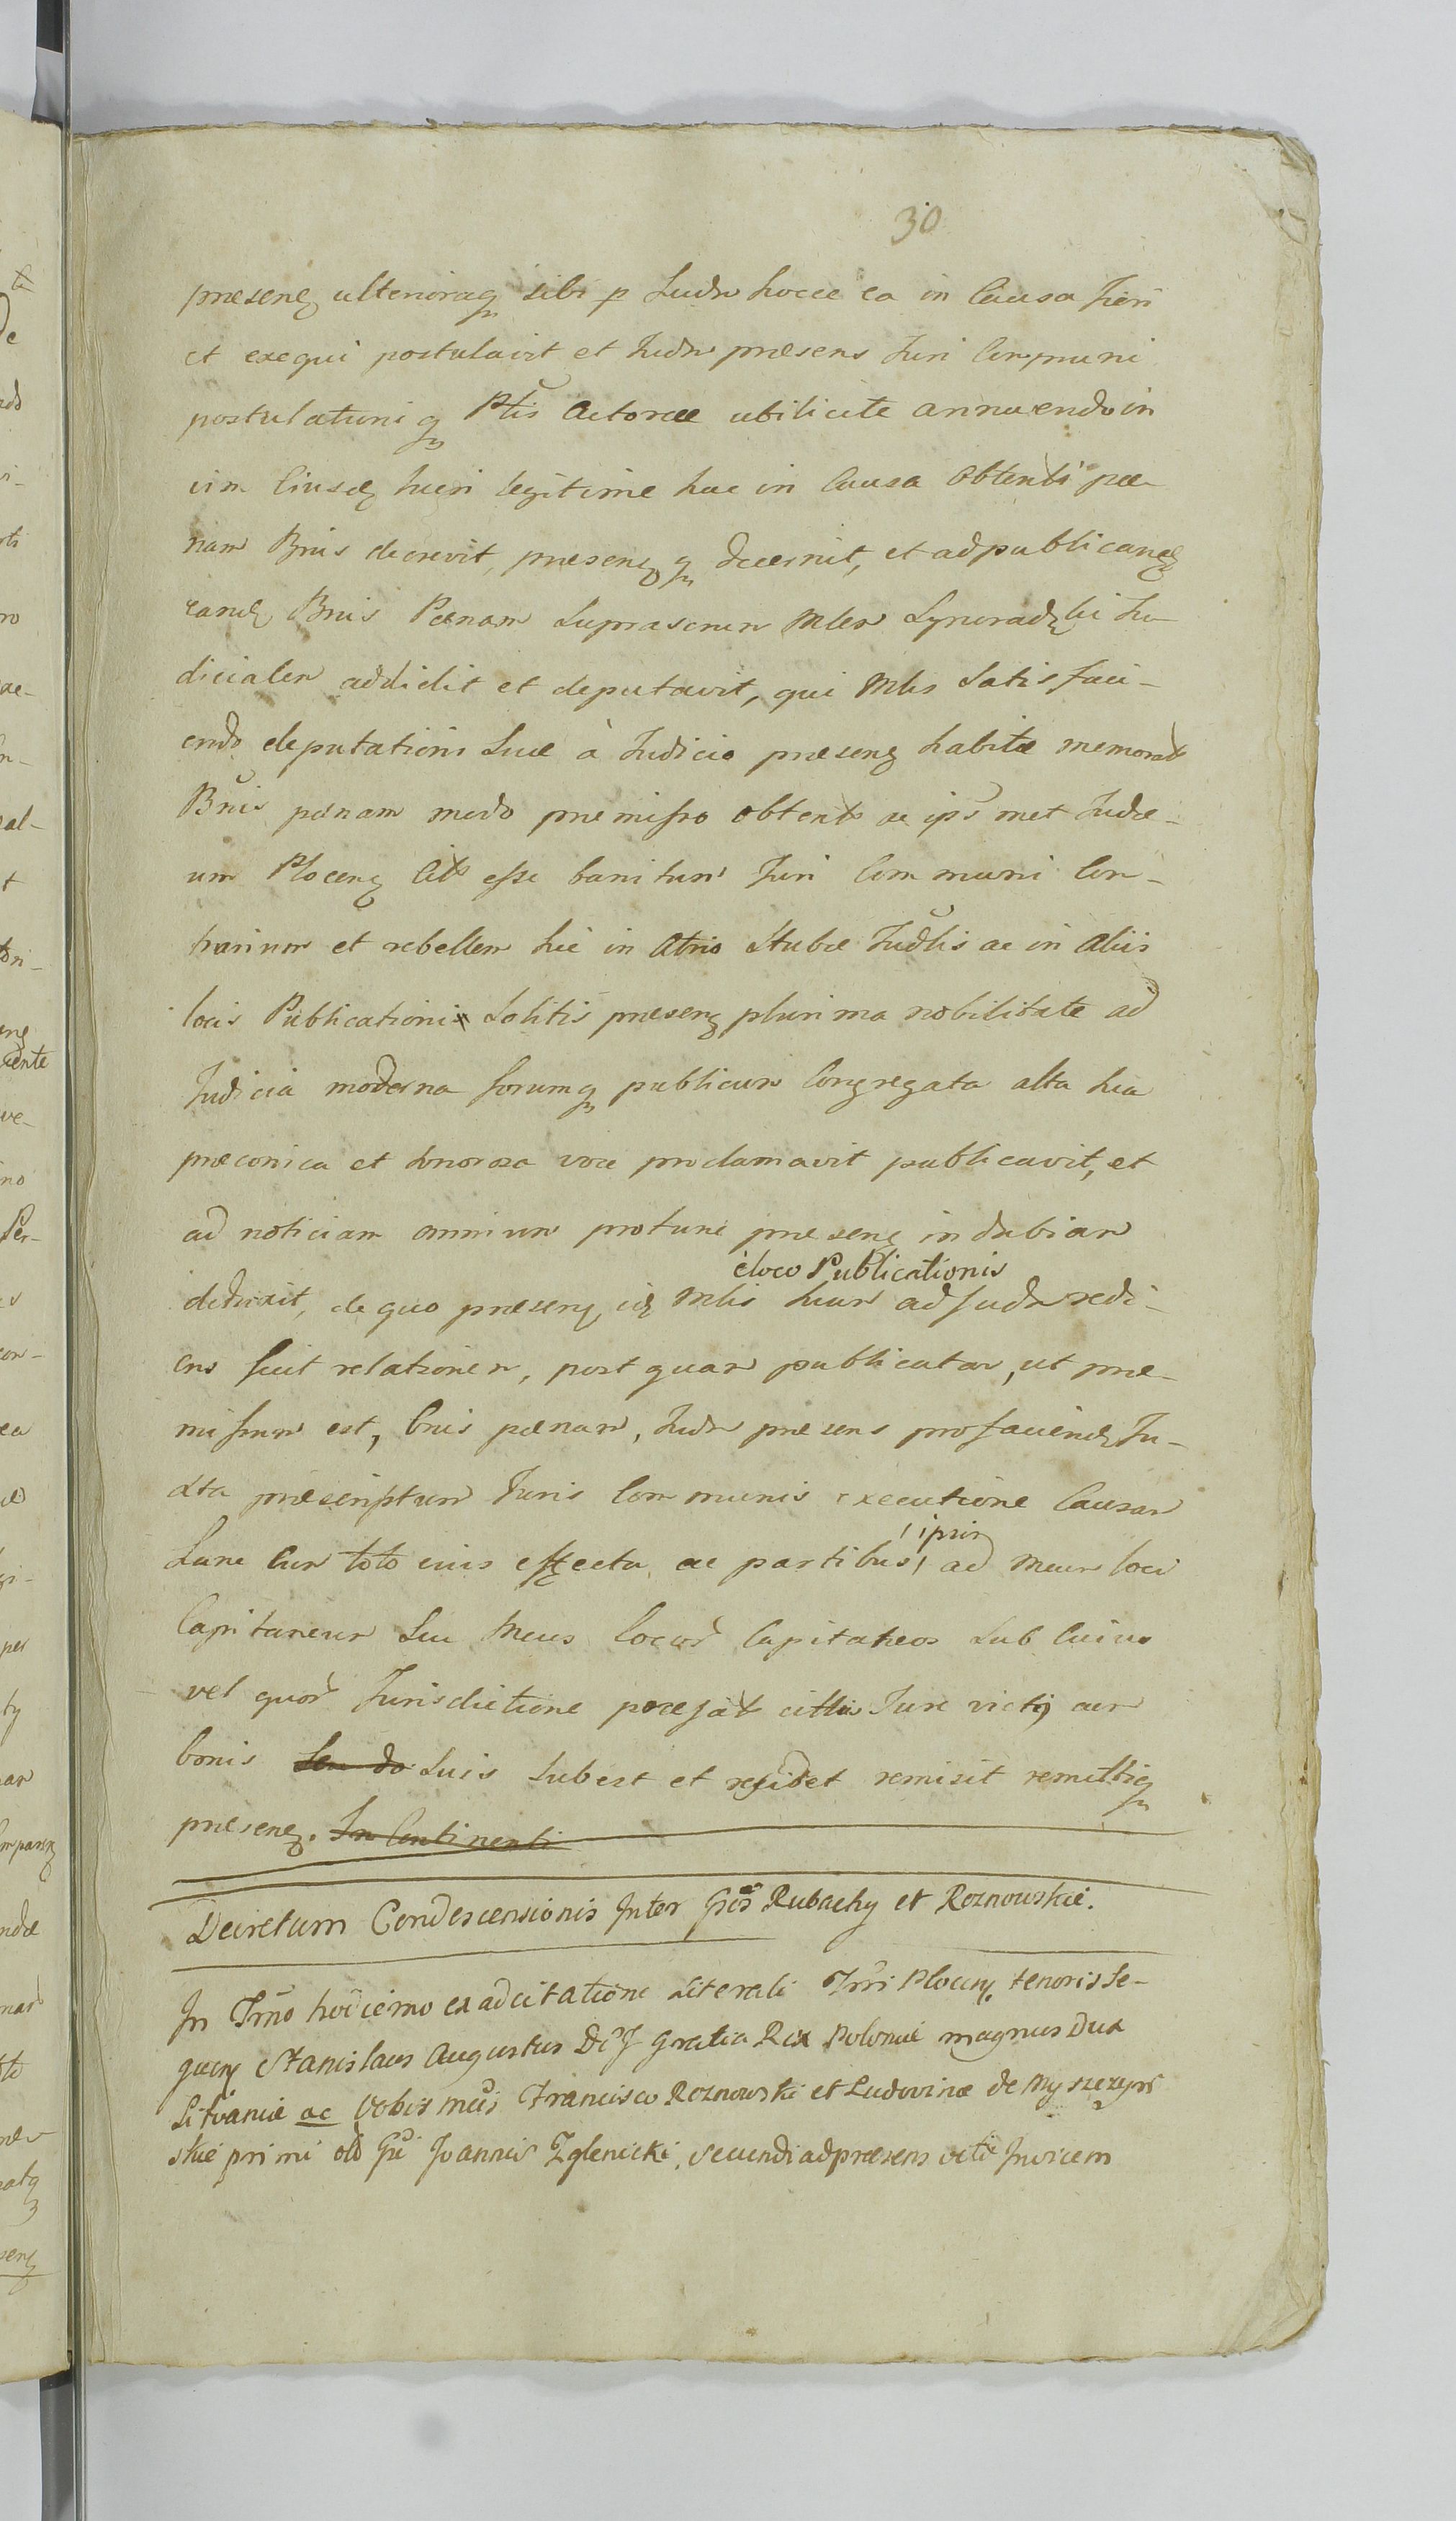 30
presenq ulterioraq sibi p Judm hocce ea in Causa fieri
et exequi postulavit et Judm præsens Juri Communi
postulationi q Ptis Actoreæ ubilicite annuendo in
vim Eiusdq lucri legitime hac in Causa obtenti pæ-
nam Bnis decrevit, præsenq q decernit, et ad publicandq
eandq Bnis Pænam Suprascrien Mlem Ju-
dicialem addidit et deputavit, qui Mlis Satisfaci-
endo deputationi Suæ à Judicio præsenq habitæ memorat
Bnis pænam modo præmisso obtent ac ipsmet Judæ-
um Plocenq Cit esse banitum Juri Communi Con-
trarium et rebellem hic in Atrio Stubæ Judlis ac in Aliis
locis Publicationis Solitis præsenq plurima nobilitate ad
Judicia moderna forumq publicum Congregata alta sua
præconica et sonorosa voce proclamavit publicavit, et
ad noticiam omnium protunc præsenq indubiam
èloco Publicationis
deduxit, de quo præsenq idq Mlis suam ad Judm redi-
ens fecit relationem, post quam publicatam, ut præ-
missum est, Bnis pænam, Judm præsens pro faciendq Ju-
xta præscriptum Juris Communis executione Causam
ipsis
hanc Cum toto eius effectu ac partibus, ad Meum loci
Capitaneum Seu Meos locor Capitaneos Sub Cuius
vel quor Jurisdictione præfat cittus Jure victq cum
bonis Seu do Suis Subest et residet remisit remittitq
presenq. In Continenti
Decretum Condescensionis Inter Gsos Rubachy et Roznowskie.
In Trno hodierno ex adcitatione Literali Trri Plocenq tenoris se-
quenq Stanislaus Augustus D G Gratia Rex Poloniæ magnus Dux
Litvaniæ ac Vobis Francisco Roznowski et Ludovinæ de
skie primi olo Joannis Zglenicki, secundi ad præsens voti Invicem